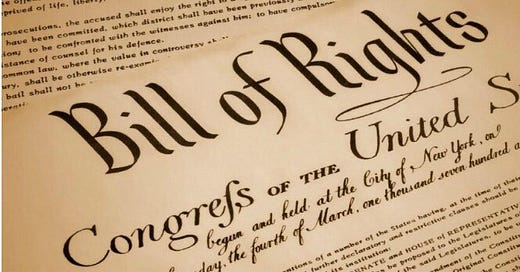 prived of life, liberty,
osecutions, the accused shall enjoy the right to a
have been committed, which district shall have been previously
ion; to be confronted with the witnesses against him; to have compulso
stance of counsel for his defence.
ommon law, where the value in controversy shall
ury, shall be otherwise re-exam
bail shall not be
Bill of Rights
Congreſs OF THE United S
begun and held at the City of New York, on
day, the fourth of March, one thousand seven hundred a
of a number of the States having, at the time of their
further declaratory and restrictive clauses should be
institution:
ENATE and HOUSE of REPRESENTATIV
proposed to the Legislatures of